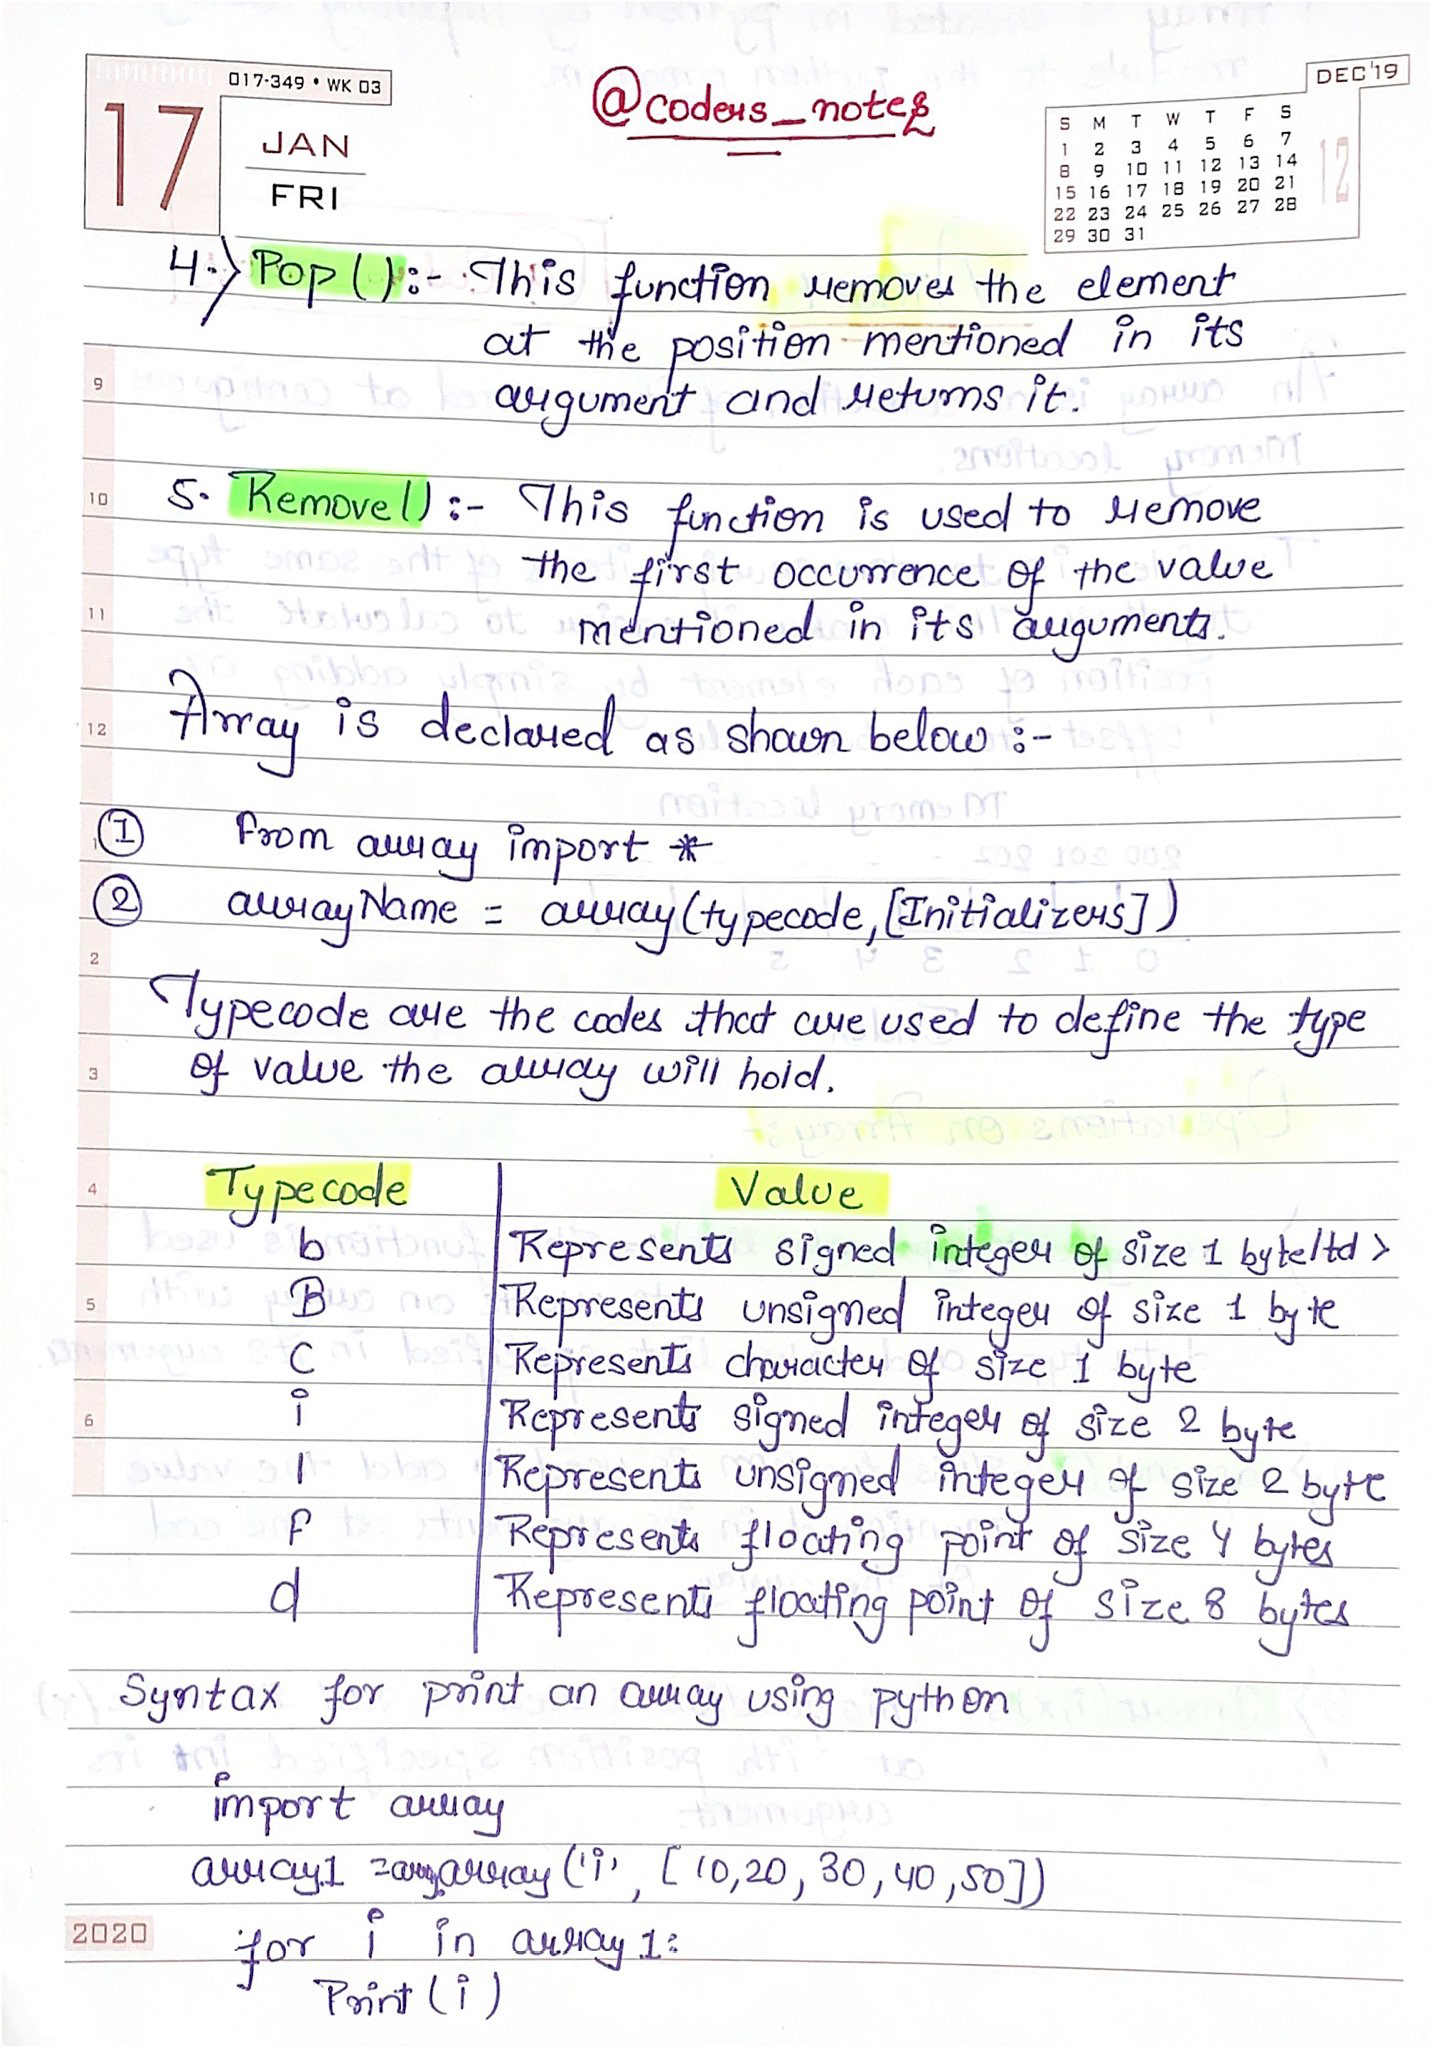 017-349 • WK 03
17
JAN
FRI
@coders_notes
DEC'19
S M T W T F S
1 2 3 4 5 6 7
8 9 10 11 12 13 14
15 16 17 18 19 20 21
22 23 24 25 26 27 28
29 30 31
12
4.) Pop():- This function removes the element
at the position mentioned in its
9
argument and returns it.
10
5. Remove():- This function is used to remove
the first occurrence of the value
11
mentioned in its arguments.
12
Array is declared as shown below:-
1
① From array import *
② arrayName = array(typecode,[Initializers])
2
Typecode are the codes that are used to define the type
3
of value the array will hold.
4
Typecode Value
b Represents signed integer of size 1 byte/td>
5
B Represents unsigned integer of size 1 byte
C Represents character of size 1 byte
6
i Represents signed integer of size 2 byte
I Represents unsigned integer of size 2 byte
F Represents floating point of size 4 bytes
d Represents floating point of size 8 bytes
Syntax for print an array using python
import array
array1 = array('i', [10,20,30,40,50])
2020
for i in array1:
Print(i)